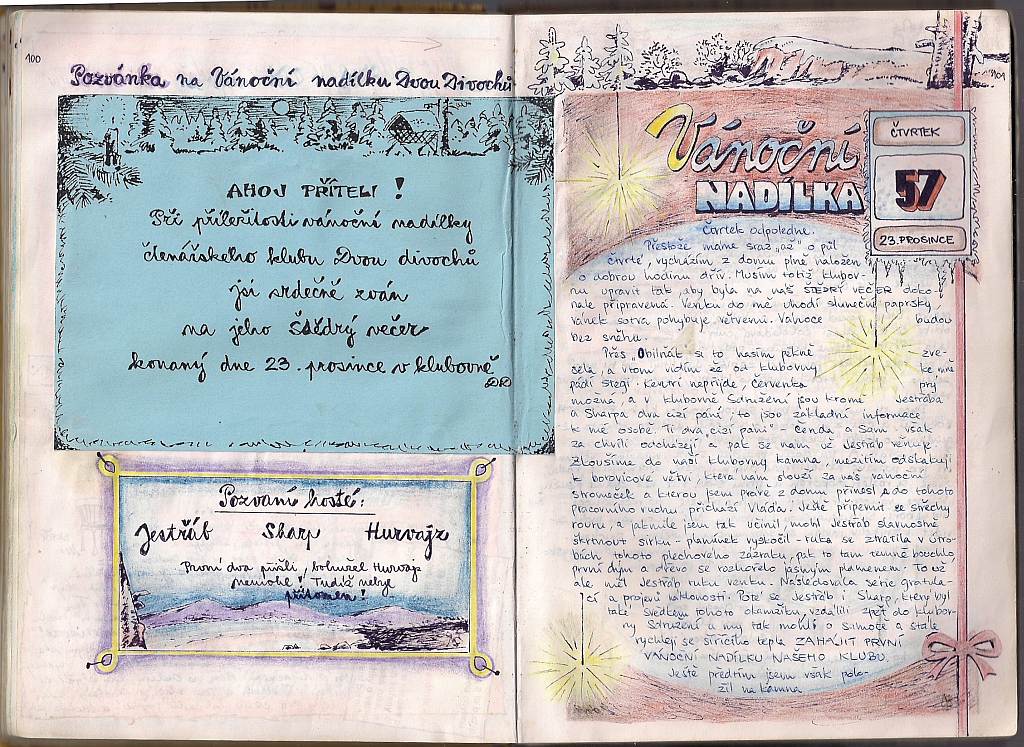 100
Pozvánka na Vánoční nadílku Dvou Divochů
AHOJ PŘÍTELI !
Při příležitosti vánoční nadílky
čtenářského klubu Dvou divochů
jsi srdečně zván
na jeho Štědrý večer
konaný dne 23. prosince v klubovně
DD
Pozvaní hosté:
Jestřáb Sharp Hurvajz
První dva přišli, bohužel Hurvajz
nemohl! Tudíž nebyl
přítomen!
101
Vánoční
NADÍLKA
ČTVRTEK
57
23.PROSINCE
Čtvrtek odpoledne.
Přestože máme sraz „až" o půl
čtvrté, vycházím z domu plně naložen
o dobrou hodinu dřív. Musím totiž klubov-
nu upravit tak, aby byla na náš ŠTĚDRÝ VEČER doko-
nale připravená. Venku do mě uhodí sluneční paprsky,
vánek sotva pohybuje větvemi. Vánoce budou
bez sněhu.
Přes „Obilňák" si to hasím pěkně zve-
čela, a vtom vidím že od klubovny ke mně
pádí Stegi. Kentri nepřijde, Červenka prý
možná, a v klubovně Sdružení jsou kromě Jestřába
a Sharpa dva cizí páni; to jsou základní informace
k mé osobě. Ti dva „cizí páni" - Čenda a Sam - však
za chvíli odcházejí a pak se nám už Jestřáb věnuje.
Zkoušíme do naší klubovny kamna, mezitím odskakuji
k borovicové větvi, která nám slouží za náš vánoční
stromeček a kterou jsem právě z domu přinesl, a do tohoto
pracovního ruchu přichází Vláďa. Ještě připevnit ze střechy
rouru, a jakmile jsem tak učinil, mohl Jestřáb slavnostně
škrtnout sirku - plamínek vyskočil - ruka se ztratila v útro-
bách tohoto plechového zázraku, pak to tam temně bouchlo,
první dým a dřevo se rozhořelo jasným plamenem. To už
ale měl Jestřáb ruku venku. Následovala série gratula-
cí a projevů náklonosti. Poté se Jestřáb i Sharp, který byl
také svědkem tohoto okamžiku, vzdálili zpět do klubov-
ny Sdružení a my tak mohli o samotě a stále
rychleji se šířícího tepla ZAHÁJIT PRVNÍ
VÁNOČNÍ NADÍLKU NAŠEHO KLUBU.
Ještě předtím jsem však polo-
žil na kamna